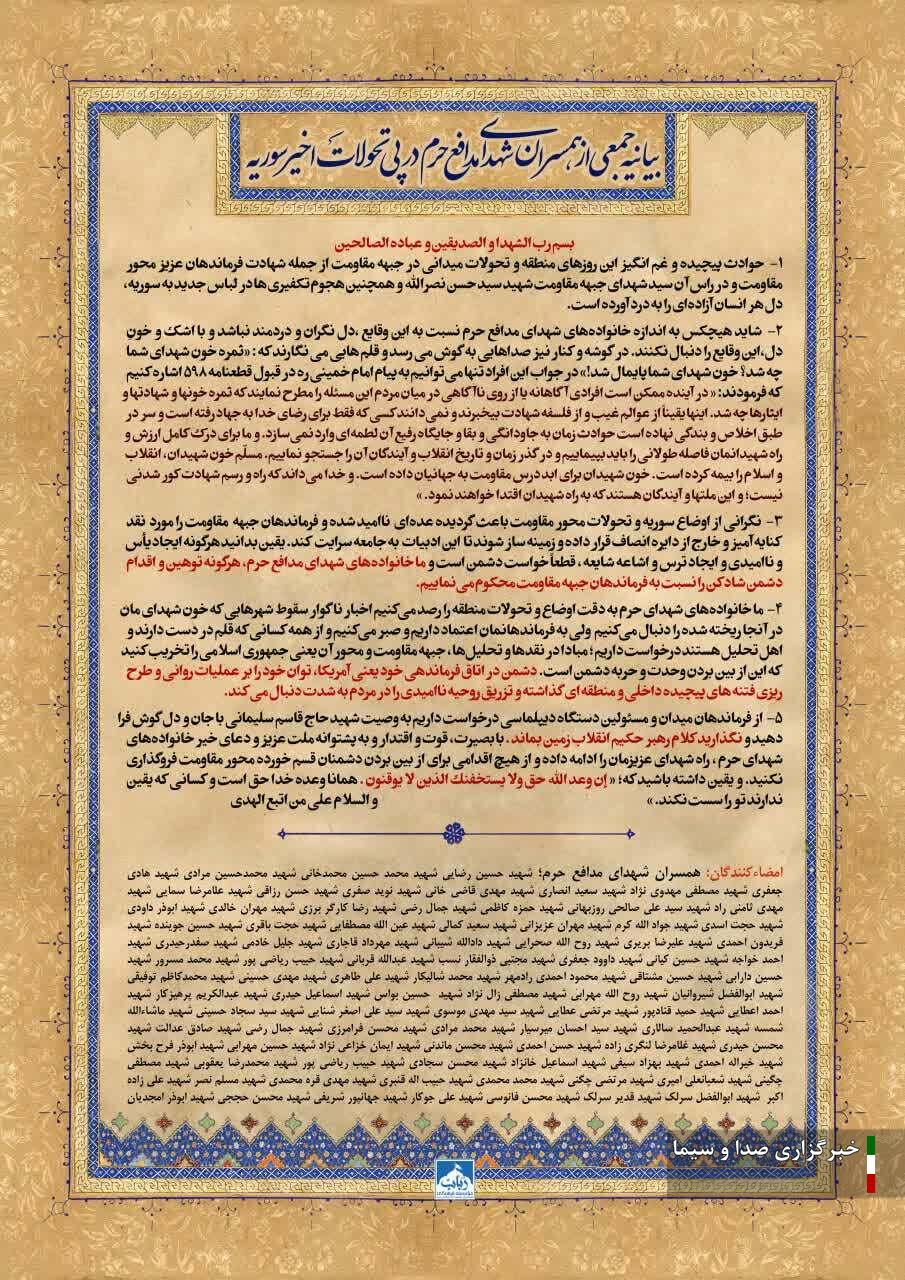 بیانیه جمعی از همسران شهدای مدافع حرم در پی تحولات اخیر سوریه
بسم رب الشهدا و الصدیقین و عباده الصالحین
۱- حوادث پیچیده و غم انگیز این روزهای منطقه و تحولات میدانی در جبهه مقاومت از جمله شهادت فرماندهان عزیز محور
مقاومت و در راس آن سید شهدای جبهه مقاومت شهید سید حسن نصرالله و همچنین هجوم تکفیری ها در لباس جدید به سوریه،
دل هر انسان آزاده‌ای را به درد آورده است.
۲- شاید هیچکس به اندازه خانواده‌های شهدای مدافع حرم نسبت به این وقایع ،دل نگران و دردمند نباشد و با اشک و خون
دل،این وقایع را دنبال نکنند. در گوشه و کنار نیز صداهایی به گوش می رسد و قلم هایی می نگارند که : «ثمره خون شهدای شما
چه شد؟ خون شهدای شما پایمال شد!» در جواب این افراد تنها می‌توانیم به پیام امام خمینی ره در قبول قطعنامه ۵۹۸ اشاره کنیم
که فرمودند: « در آینده ممکن است افرادی آگاهانه یا از روی ناآگاهی در میان مردم این مسئله را مطرح نمایند که ثمره خونها و شهادتها و
ایثارها چه شد. اینها یقیناً از عوالم غیب و از فلسفه شهادت بیخبرند و نمی‌دانند کسی که فقط برای رضای خدا به جهاد رفته است و سر در
طبق اخلاص و بندگی نهاده است حوادث زمان به جاودانگی و بقا و جایگاه رفیع آن لطمه‌ای وارد نمی سازد. و ما برای درک کامل ارزش و
راه شهیدانمان فاصله طولانی را باید بپیماییم و در گذر زمان و تاریخ انقلاب و آیندگان آن را جستجو نماییم. مسلّم خون شهیدان، انقلاب
و اسلام را بیمه کرده است. خون شهیدان برای ابد درس مقاومت به جهانیان داده است. و خدا می‌داند که راه و رسم شهادت کور شدنی
نیست؛ و این ملتها و آیندگان هستند که به راه شهیدان اقتدا خواهند نمود. »
۳- نگرانی از اوضاع سوریه و تحولات محور مقاومت باعث گردیده عده‌ای ناامید شده و فرماندهان جبهه مقاومت را مورد نقد
کنایه آمیز و خارج از دایره انصاف قرار داده و زمینه ساز شوند تا این ادبیات به جامعه سرایت کند. یقین بدانید هرگونه ایجاد یأس
و ناامیدی و ایجاد ترس و اشاعه شایعه ، قطعاً خواست دشمن است و ما خانواده‌های شهدای مدافع حرم، هرگونه توهین و اقدام
دشمن شادکن را نسبت به فرماندهان جبهه مقاومت محکوم می نماییم.
۴- ما خانواده‌های شهدای حرم به دقت اوضاع و تحولات منطقه را رصد می‌کنیم اخبار ناگوار سقوط شهرهایی که خون شهدای مان
در آنجا ریخته شده را دنبال می‌کنیم ولی به فرماندهانمان اعتماد داریم و صبر می‌کنیم و از همه کسانی که قلم در دست دارند و
اهل تحلیل هستند درخواست داریم ؛ مبادا در نقدها و تحلیل‌ها ، جبهه مقاومت و محور آن یعنی جمهوری اسلامی را تخریب کنید
که این از بین بردن وحدت و حربه دشمن است. دشمن در اتاق فرماندهی خود یعنی آمریکا، توان خود را بر عملیات روانی و طرح
ریزی فتنه های پیچیده داخلی و منطقه ای گذاشته و تزریق روحیه ناامیدی را در مردم به شدت دنبال می کند.
۵- از فرماندهان میدان و مسئولین دستگاه دیپلماسی درخواست داریم به وصیت شهید حاج قاسم سلیمانی با جان و دل گوش فرا
دهید و نگذارید کلام رهبر حکیم انقلاب زمین بماند . با بصیرت، قوت و اقتدار و به پشتوانه ملت عزیز و دعای خیر خانواده‌های
شهدای حرم ، راه شهدای عزیزمان را ادامه داده و از هیچ اقدامی برای از بین بردن دشمنان قسم خورده محور مقاومت فروگذاری
نکنید. و یقین داشته باشید که؛ « إن وعد الله حق ولا یستخفنك الذین لا یوقنون . همانا وعده خدا حق است و کسانی که یقین
ندارند تو را سست نکند. » و السلام علی من اتبع الهدی
امضاءکنندگان: همسران شهدای مدافع حرم؛ شهید حسین رضایی شهید محمد حسین محمدخانی شهید محمدحسین مرادی شهید هادی
جعفری شهید مصطفی مهدوی نژاد شهید سعید انصاری شهید مهدی قاضی خانی شهید نوید صفری شهید حسن رزاقی شهید غلامرضا سمایی شهید
مهدی ثامنی راد شهید سید علی صالحی روزبهانی شهید حمزه کاظمی شهید جمال رضی شهید رضا کارگر برزی شهید مهران خالدی شهید ابوذر داودی
شهید حجت اسدی شهید جواد الله کرم شهید مهران عزیزانی شهید سعید کمالی شهید عین الله مصطفایی شهید حجت باقری شهید حسین جوینده شهید
فریدون احمدی شهید علیرضا بریری شهید روح الله صحرایی شهید دادالله شیبانی شهید مهرداد قاجاری شهید جلیل خادمی شهید صفدرحیدری شهید
احمد خواجه شهید حسین کیانی شهید داوود جعفری شهید مجتبی ذوالفقار نسب شهید عبدالله قربانی شهید حبیب ریاضی پور شهید محمد مسرور شهید
حسین دارابی شهید حسین مشتاقی شهید محمود احمدی رادمهر شهید محمد شالیکار شهید علی طاهری شهید مهدی حسینی شهید محمدکاظم توفیقی
شهید ابوالفضل شیروانیان شهید روح الله مهرابی شهید مصطفی زال نژاد شهید حسین بواس شهید اسماعیل حیدری شهید عبدالکریم پرهیزکار شهید
احمد اعطایی شهید حمید قنادپور شهید مرتضی عطایی شهید سید مهدی موسوی شهید سید علی اصغر شنایی شهید سید سجاد حسینی شهید ماشاءالله
شمسه شهید عبدالحمید سالاری شهید سید احسان میرسیار شهید محمد مرادی شهید محسن فرامرزی شهید جمال رضی شهید صادق عدالت شهید
محسن حیدری شهید غلامرضا لنگری زاده شهید حسن احمدی شهید محسن ماندنی شهید ایمان خزاعی نژاد شهید حسین مهرابی شهید ابوذر فرح بخش
شهید خیراله احمدی شهید بهزاد سیفی شهید اسماعیل خانزاد شهید محسن سجادی شهید حبیب ریاضی پور شهید محمدرضا یعقوبی شهید مصطفی
چگینی شهید شعبانعلی امیری شهید مرتضی چگنی شهید محمد محمدی شهید حبیب اله قنبری شهید مهدی قره محمدی شهید مسلم نصر شهید علی زاده
اکبر شهید ابوالفضل سرلک شهید قدیر سرلک شهید محسن فانوسی شهید علی جوکار شهید جهانپور شریفی شهید محسن حججی شهید ابوذر امجدیان
خبرگزاری صدا و سیما